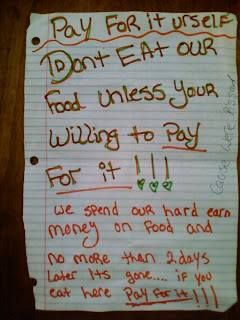 Pay For it urself
Dont EAt OUR
Food unless your
Willing to Pay
For it !!!
we spend our hard earn
money on food and
no more than 2 days
later its gone.... if you
eat here Pay for it !!!
cause were Pissed